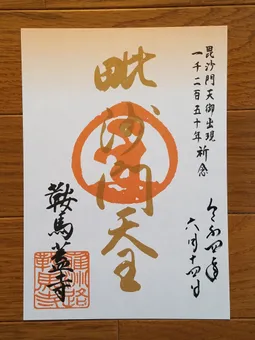 毘沙門天御出現
一千二百五十年祈念
令和四年
六月十四日
毗沙門天王
鞍馬蓋寺